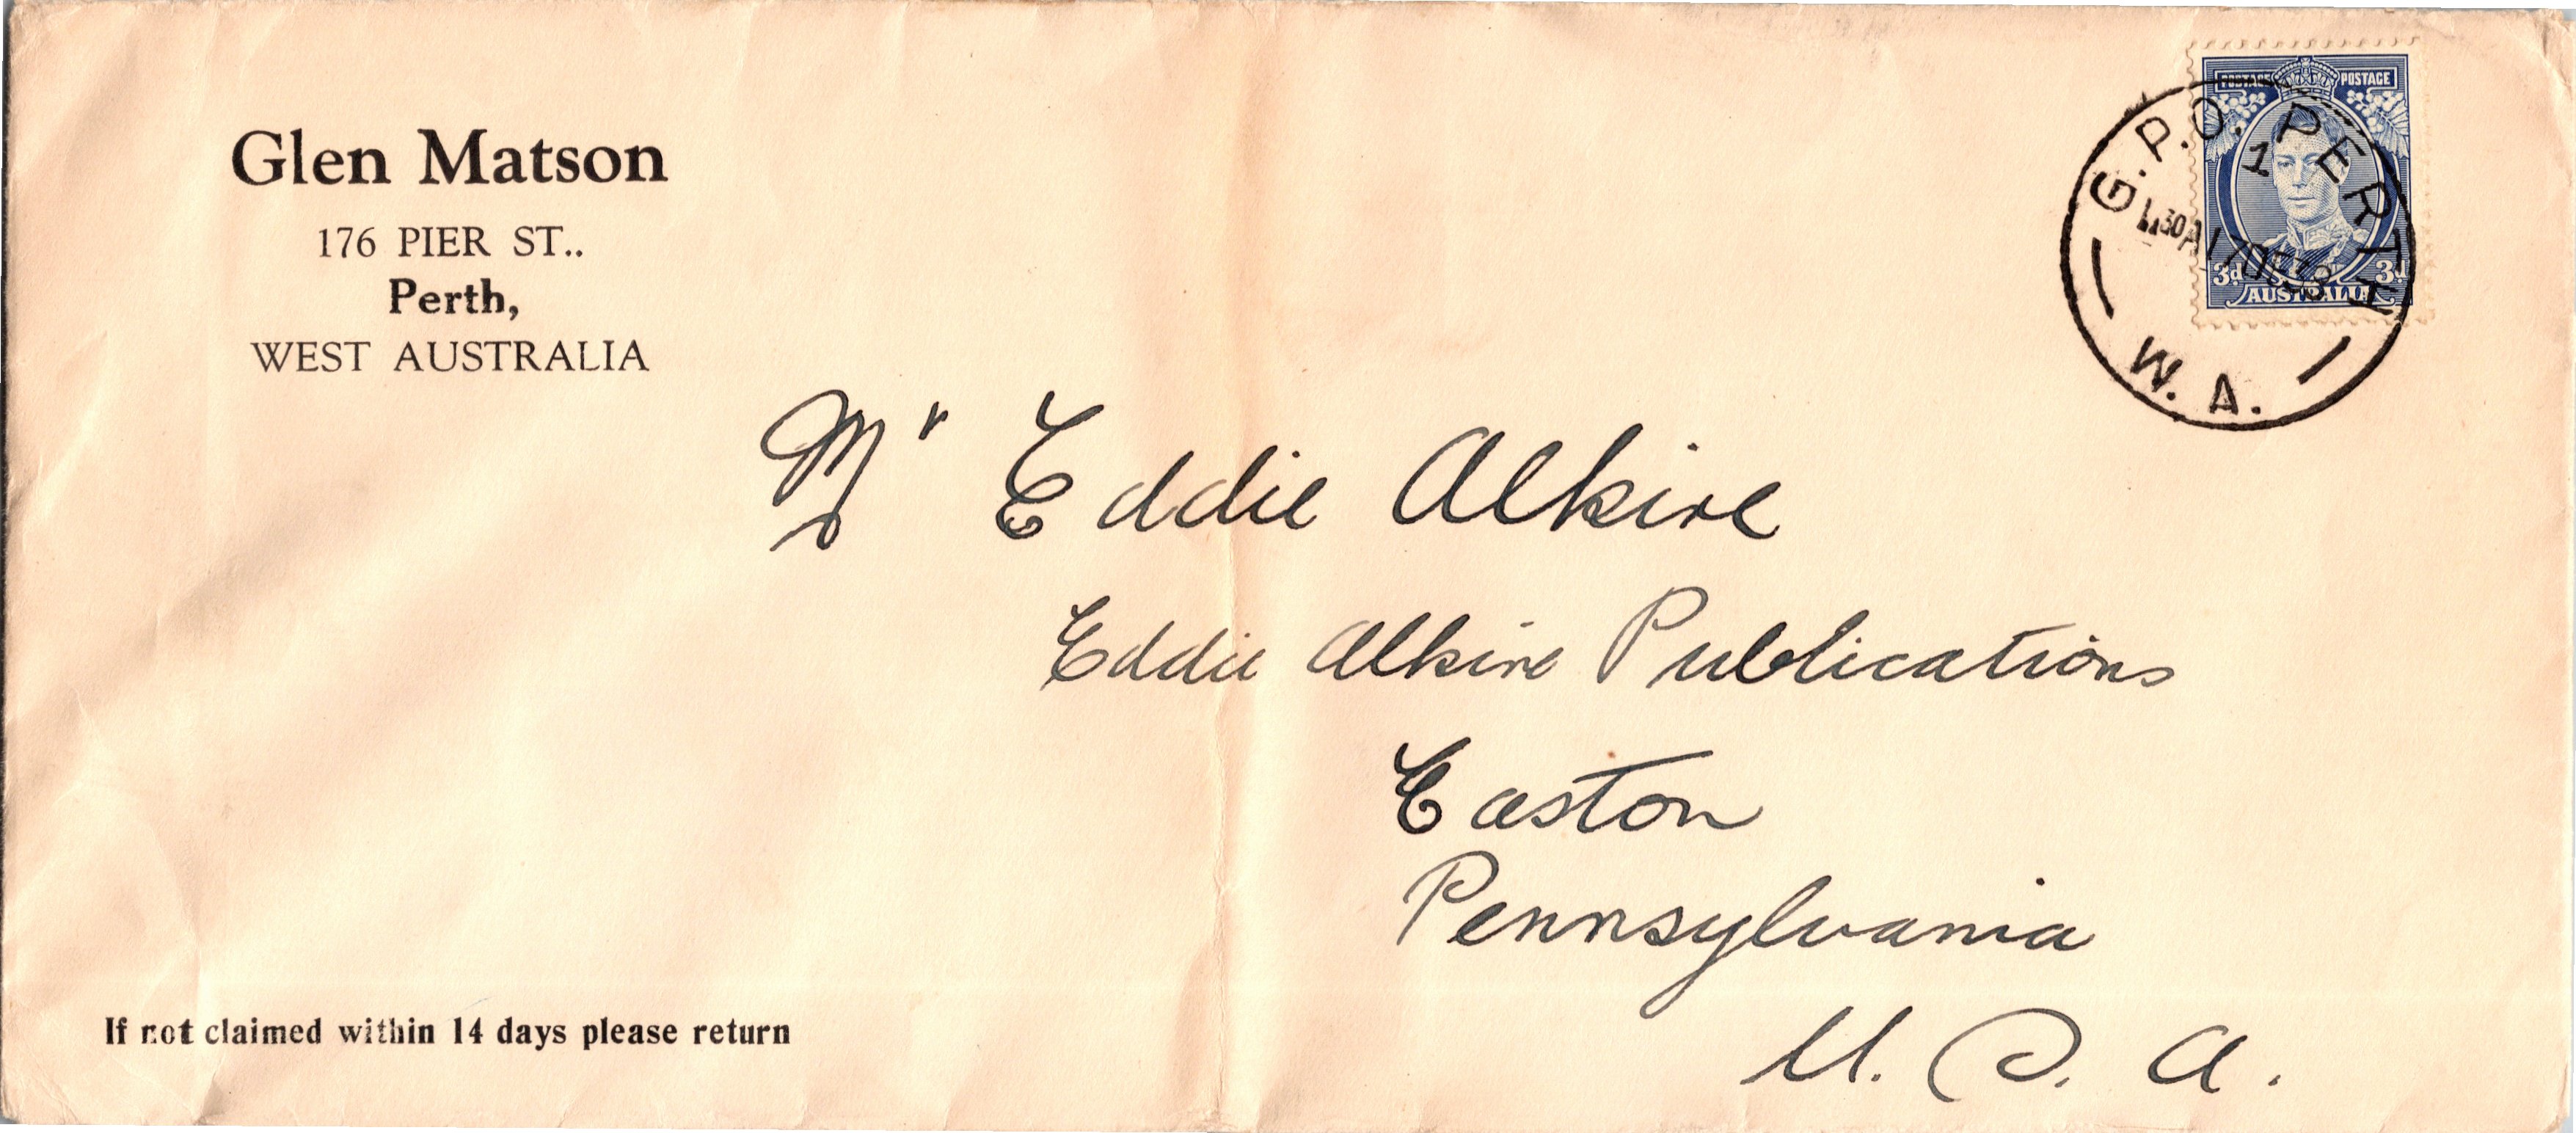 Glen Matson
176 PIER ST..
Perth,
WEST AUSTRALIA
POSTAGE POSTAGE
3d 3d
AUSTRALIA
G.P.O. PERTH
1
W. A.
Mr Eddie Alkire
Eddie Alkire Publications
Easton
Pennsylvania
U. S. A.
If not claimed within 14 days please return